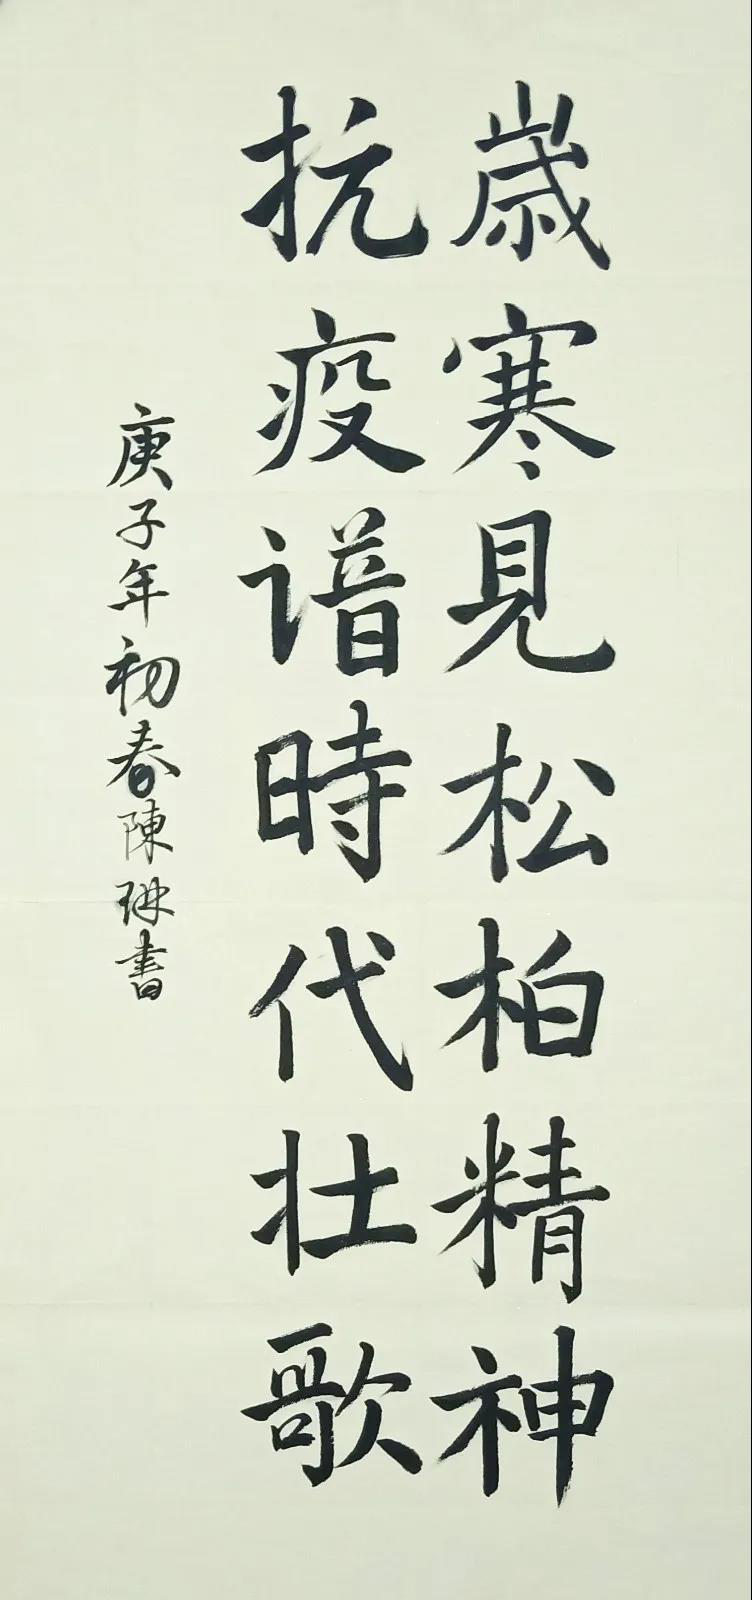 歲寒見松柏精神
抗疫谱時代壮歌
庚子年初春陳琳書